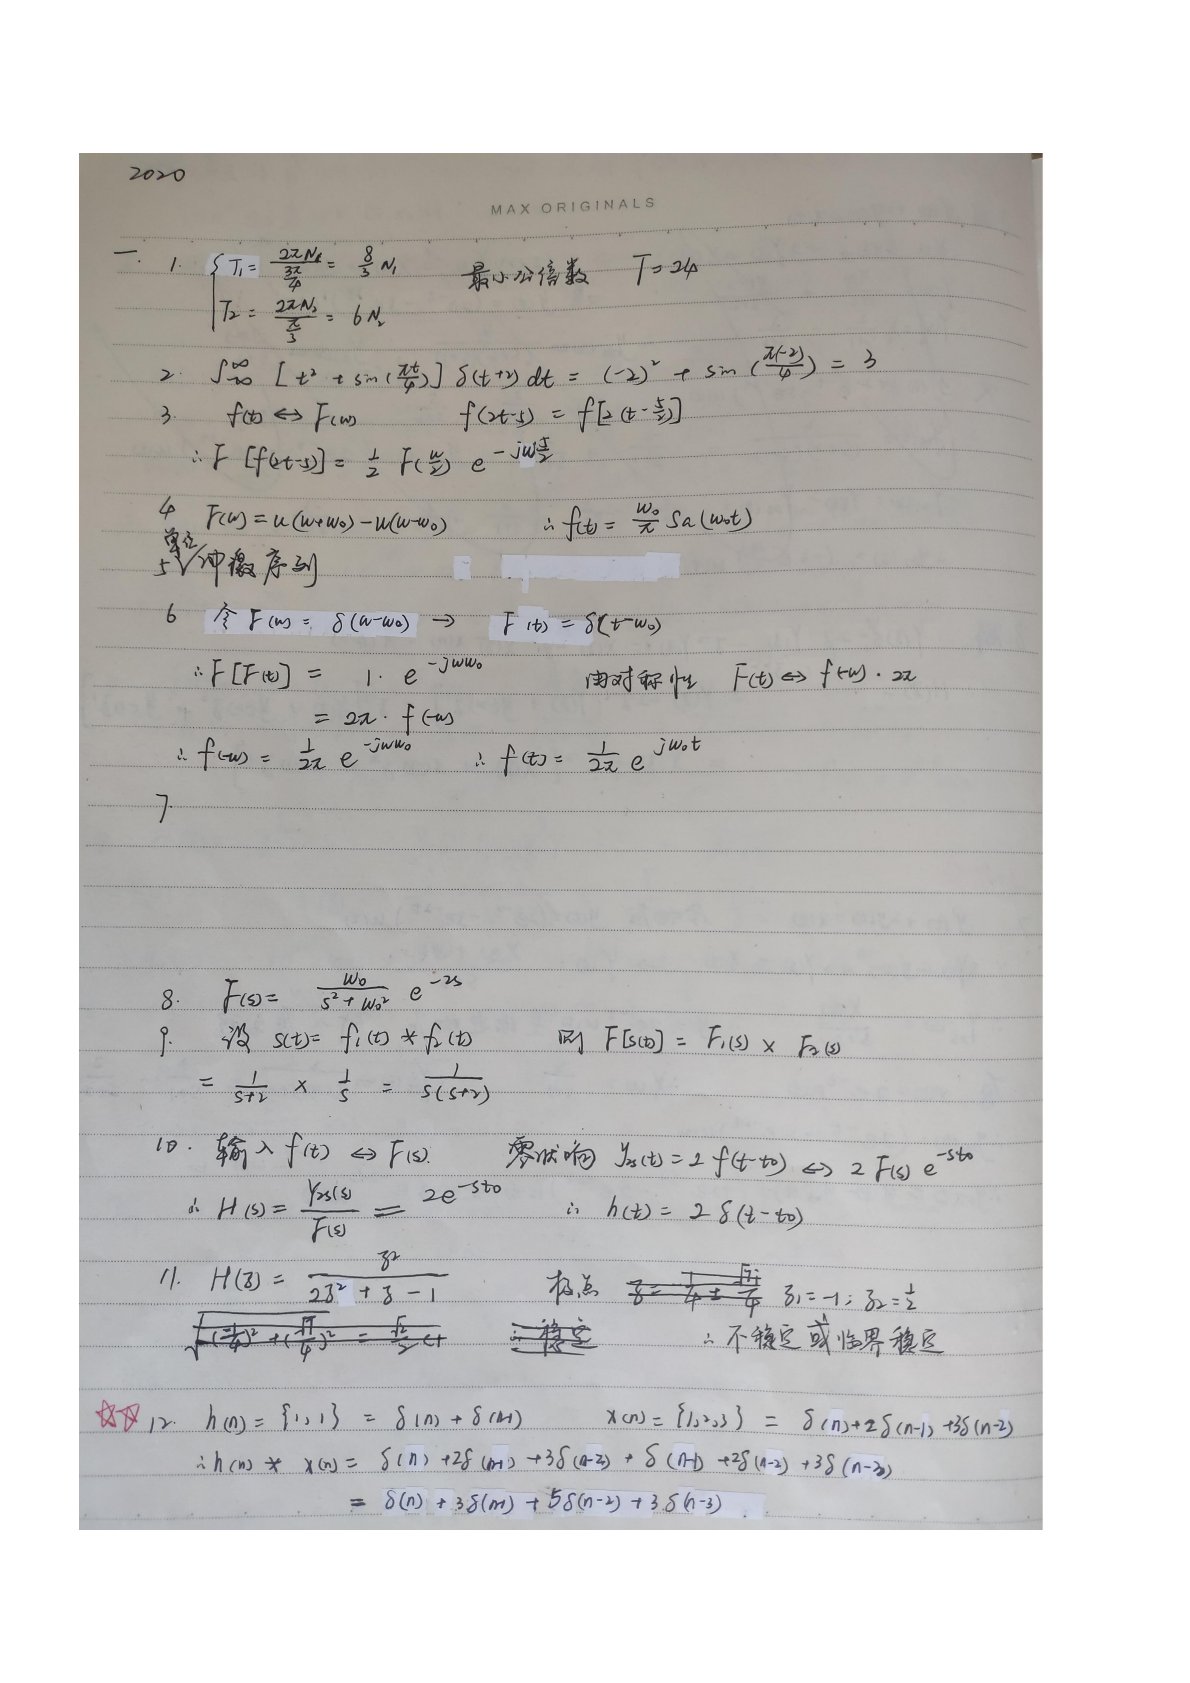 2020
MAX ORIGINALS
一. 1. { T₁ = 2πN₁/(3π/4) = 8/3 N₁ 最小公倍数 T=24
T₂ = 2πN₂/(π/3) = 6N₂
2. ∫_{-∞}^{∞} [t² + sin(πt/4)] δ(t+2) dt = (-2)² + sin(π(-2)/4) = 3
3. f(t) ↔ F(w) f(2t-5) = f[2(t-5/2)]
∴ F[f(2t-5)] = 1/2 F(w/2) e^{-jw5/2}
4 F(w) = u(w+w₀) - u(w-w₀) ∴ f(t) = w₀/π Sa(w₀t)
5 单位冲激序列
6 令 F(w) = δ(w-w₀) → F(t) = δ(t-w₀)
∴ F[F(t)] = 1· e^{-jww₀} 由对称性 F(t) ↔ f(-w)·2π
= 2π· f(-w)
∴ f(-w) = 1/2π e^{-jww₀} ∴ f(t) = 1/2π e^{jw₀t}
7.
8. F(s) = w₀/(s²+w₀²) e^{-2s}
9. 设 s(t) = f₁(t) * f₂(t) 则 F[s(t)] = F₁(s) × F₂(s)
= 1/(s+2) × 1/s = 1/(s(s+2))
10. 输入 f(t) ↔ F(s). 零状响 Yzs(t) = 2 f(t-t₀) ↔ 2 F(s) e^{-st₀}
∴ H(s) = Yzs(s)/F(s) = 2e^{-st₀} ∴ h(t) = 2 δ(t-t₀)
11. H(z) = z²/(2z²+z-1) 极点 z₁=-1; z₂=1/2
∴ 不稳定或临界稳定
12. h(n) = {1,1} = δ(n) + δ(n-1) x(n) = {1,2,3} = δ(n)+2δ(n-1)+3δ(n-2)
∴ h(n) * x(n) = δ(n) +2δ(n-1) +3δ(n-2) + δ(n-1) +2δ(n-2) +3δ(n-3)
= δ(n) +3δ(n-1) +5δ(n-2) +3δ(n-3)